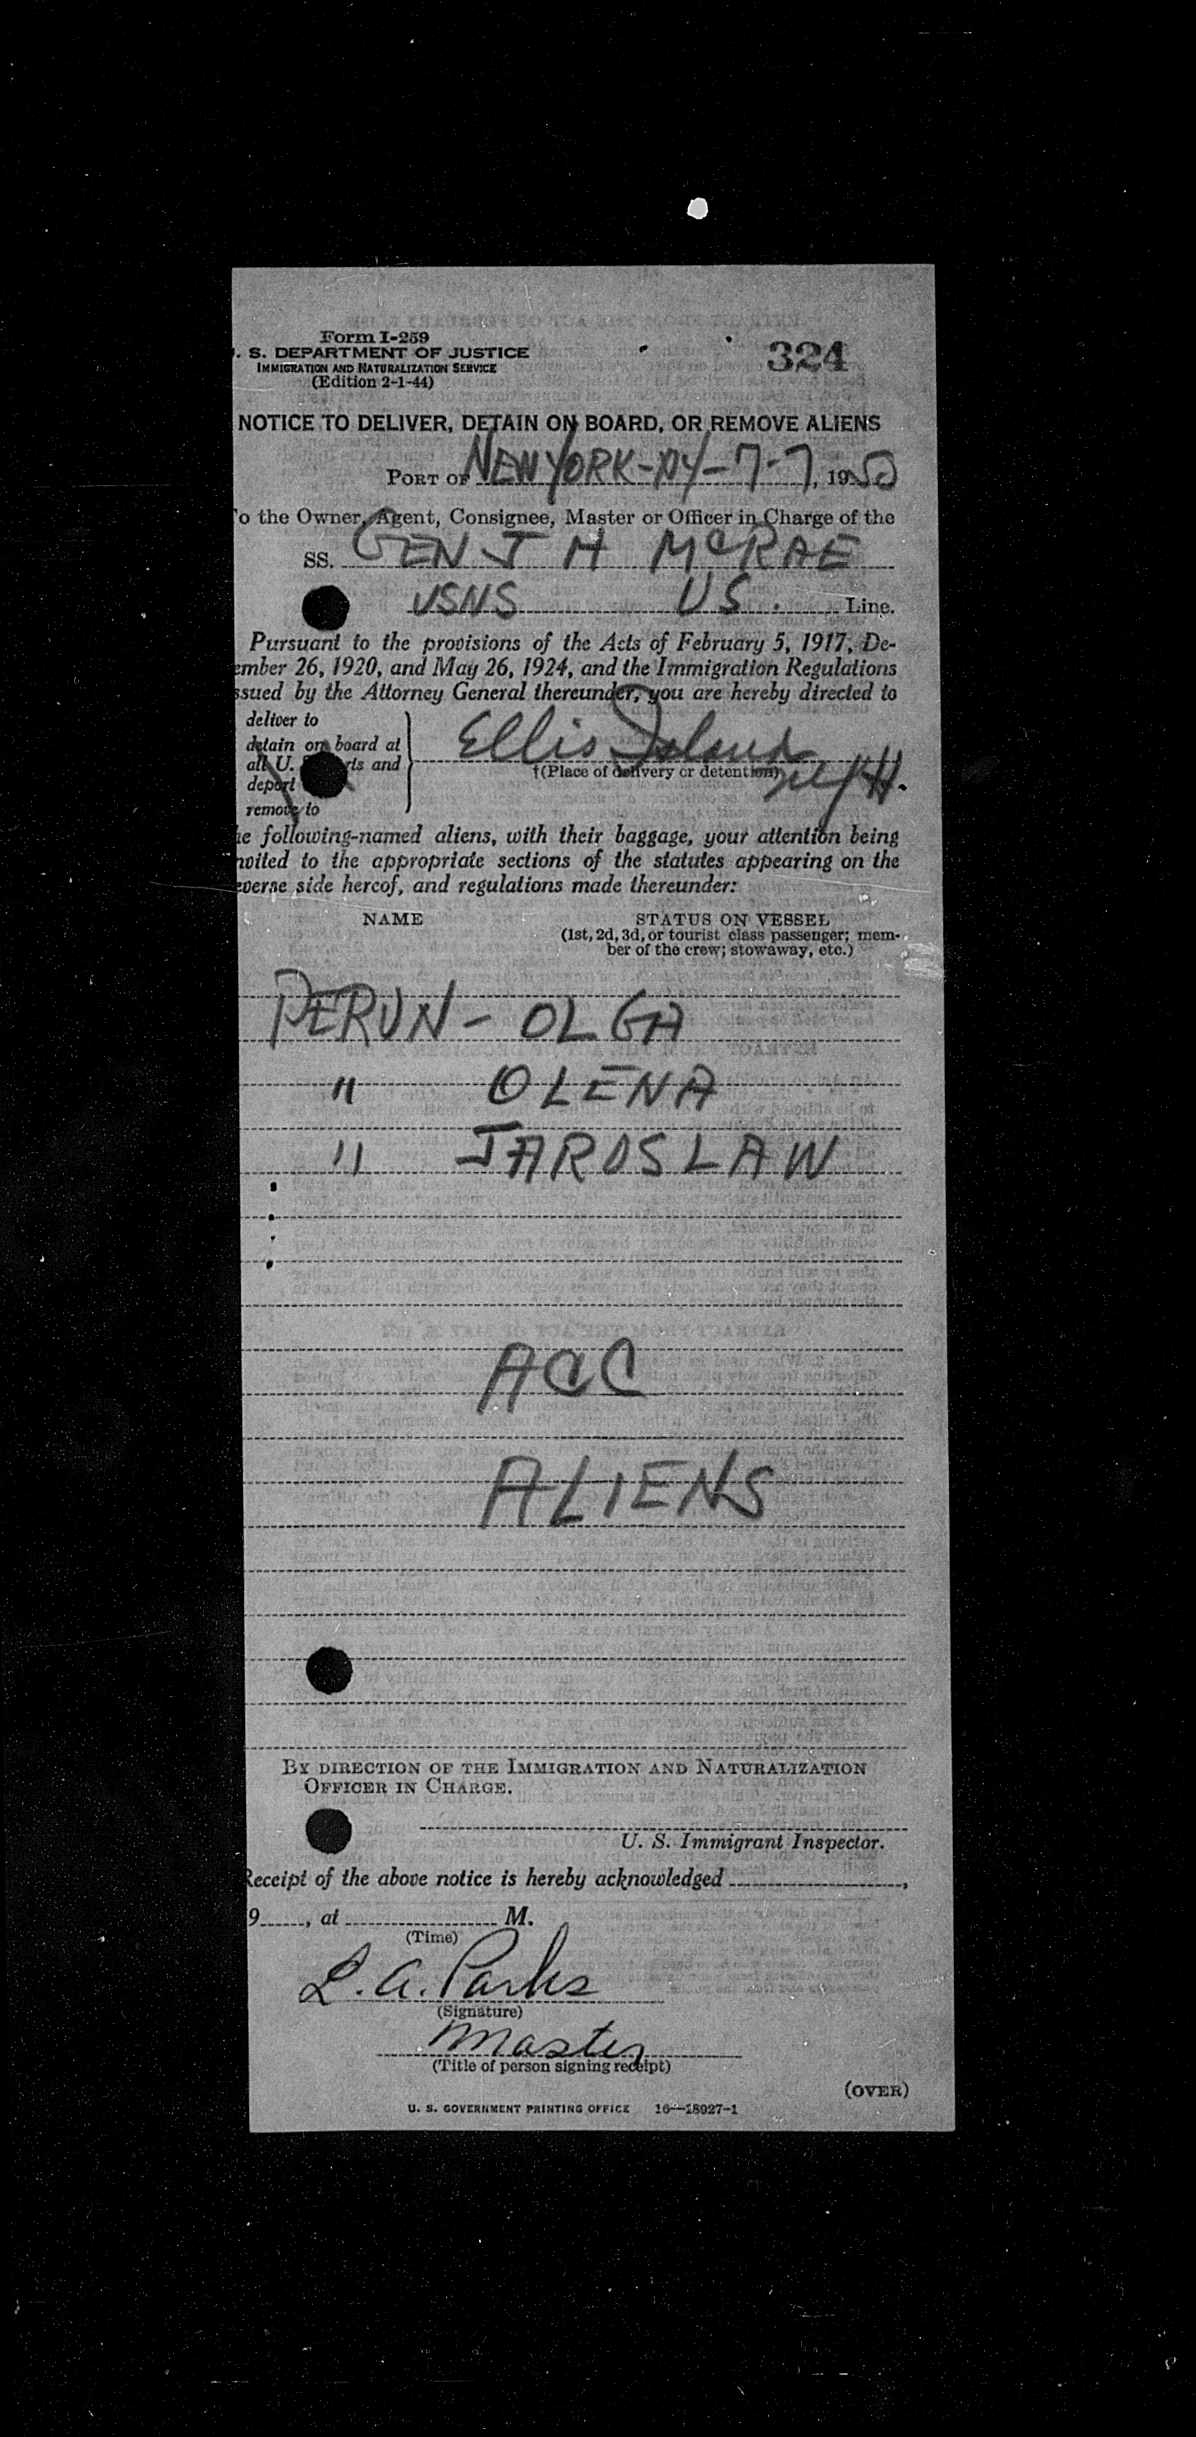 Form I-259
. S. DEPARTMENT OF JUSTICE
IMMIGRATION AND NATURALIZATION SERVICE
(Edition 2-1-44)
324
NOTICE TO DELIVER, DETAIN ON BOARD, OR REMOVE ALIENS
PORT OF NEW YORK-NY-7-7, 1950
o the Owner, Agent, Consignee, Master or Officer in Charge of the
SS. GEN J H McRAE
USNS US. Line.
Pursuant to the provisions of the Acts of February 5, 1917, De-
ember 26, 1920, and May 26, 1924, and the Immigration Regulations
ssued by the Attorney General thereunder, you are hereby directed to
deliver to
detain on board at
all U. S. rts and
deport
remove to
Ellis Island
†(Place of delivery or detention)
NYH.
e following-named aliens, with their baggage, your attention being
nvited to the appropriate sections of the statutes appearing on the
everse side hereof, and regulations made thereunder:
NAME
STATUS ON VESSEL
(1st, 2d, 3d, or tourist class passenger; mem-
ber of the crew; stowaway, etc.)
PERUN - OLGA
" OLENA
" JAROSLAW
ACC
ALIENS
BY DIRECTION OF THE IMMIGRATION AND NATURALIZATION
OFFICER IN CHARGE.
U. S. Immigrant Inspector.
Receipt of the above notice is hereby acknowledged ,
9 , at M.
(Time)
L. A. Parks
(Signature)
Master
(Title of person signing receipt)
(OVER)
U. S. GOVERNMENT PRINTING OFFICE 16—18927-1